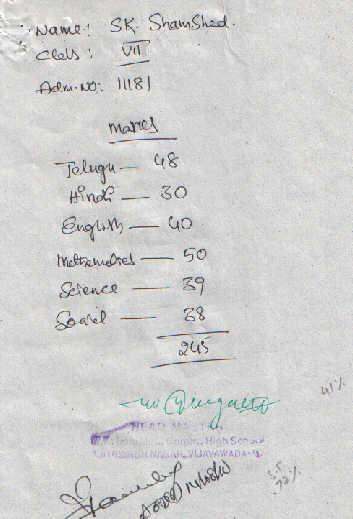 Name: SK. Shamshed.
Class: VII
Adm. No: 11181
Marks
Telugu — 48
Hindi — 30
English — 40
Mathematics — 50
Science — 39
Social — 38
245
41%
High School
NAGAR, VIJAYAWADA